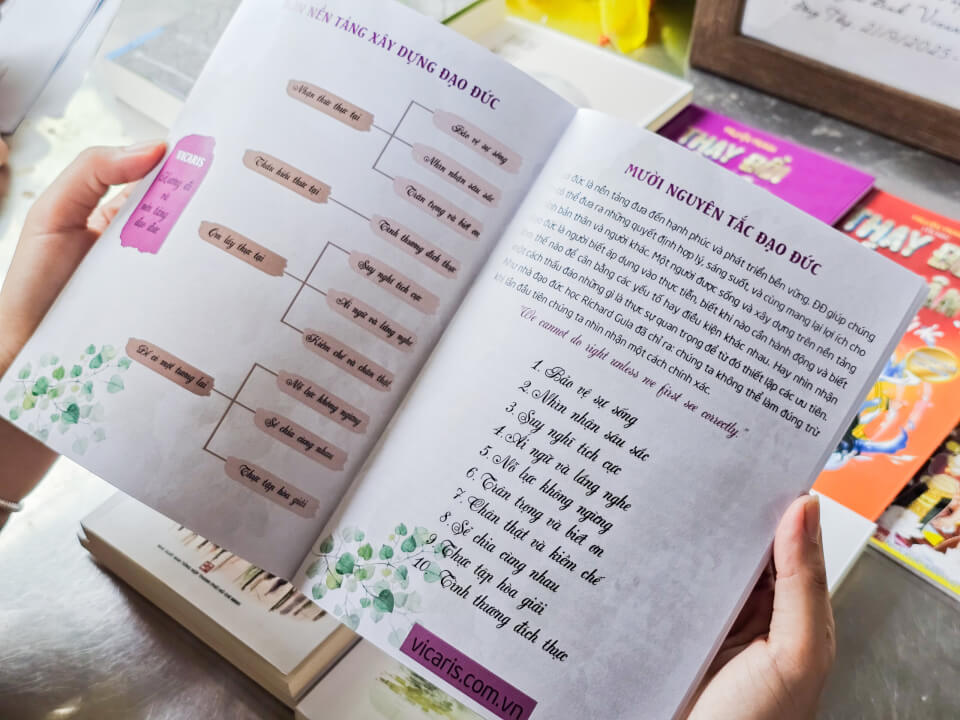 NỀN TẢNG XÂY DỰNG ĐẠO ĐỨC
VICARIS
Hướng đi
và
nền tảng
đạo đức
Nhận thức thực tại
Thấu hiểu thực tại
Ôm lấy thực tại
Để có một tương lai
Bảo vệ sự sống
Nhìn nhận sâu sắc
Trân trọng và biết ơn
Tình thương đích thực
Suy nghĩ tích cực
Ái ngữ và lắng nghe
Kiềm chế và chân thật
Nỗ lực không ngừng
Sẻ chia cùng nhau
Thực tập hòa giải
MƯỜI NGUYÊN TẮC ĐẠO ĐỨC
đức là nền tảng đưa đến hạnh phúc và phát triển bền vững. ĐĐ giúp chúng
có thể đưa ra những quyết định hợp lý, sáng suốt, và cùng mang lại lợi ích cho
chính bản thân và người khác. Một người được sống và xây dựng trên nền tảng
đạo đức là người biết áp dụng vào thực tiễn, biết khi nào cần hành động và biết
làm thế nào để cân bằng các yếu tố hay điều kiện khác nhau. Hay nhìn nhận
một cách thấu đáo những gì là thực sự quan trọng để từ đó thiết lập các ưu tiên.
Như nhà đạo đức học Richard Gula đã chỉ ra: chúng ta không thể làm đúng trừ
khi lần đầu tiên chúng ta nhìn nhận một cách chính xác.
"We cannot do right unless we first see correctly."
1. Bảo vệ sự sống
2. Nhìn nhận sâu sắc
3. Suy nghĩ tích cực
4. Ái ngữ và lắng nghe
5. Nỗ lực không ngừng
6. Trân trọng và biết ơn
7. Chân thật và kiềm chế
8. Sẻ chia cùng nhau
9. Thực tập hòa giải
10. Tình thương đích thực
vicaris.com.vn
THAY ĐỔI
THAY ĐỔI